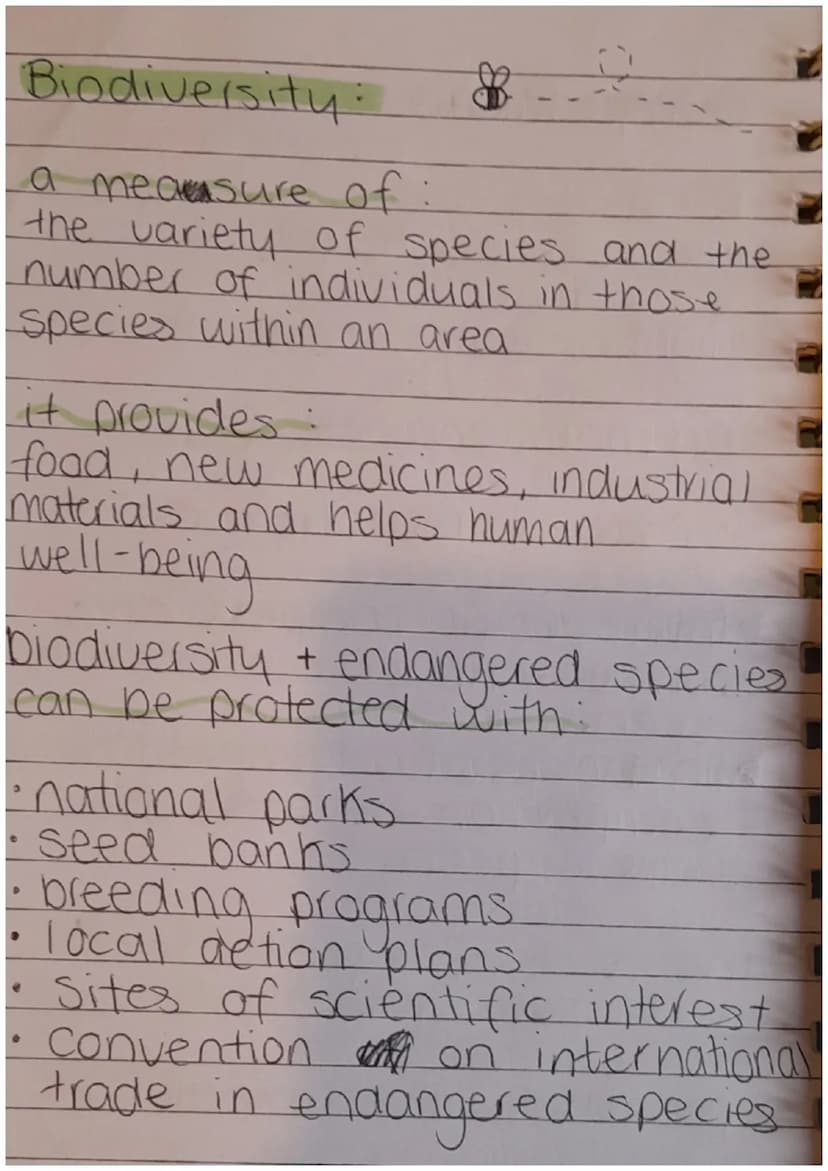 Biodiversity:
a measure of:
the variety of species and the
number of individuals in those
species within an area
it provides:
food, new medicines, industrial
materials and helps human
well-being
biodiversity + endangered species
can be protected with:
· national parks
· seed banks
· breeding programs
· local action plans
· sites of scientific interest
· convention on international
trade in endangered species